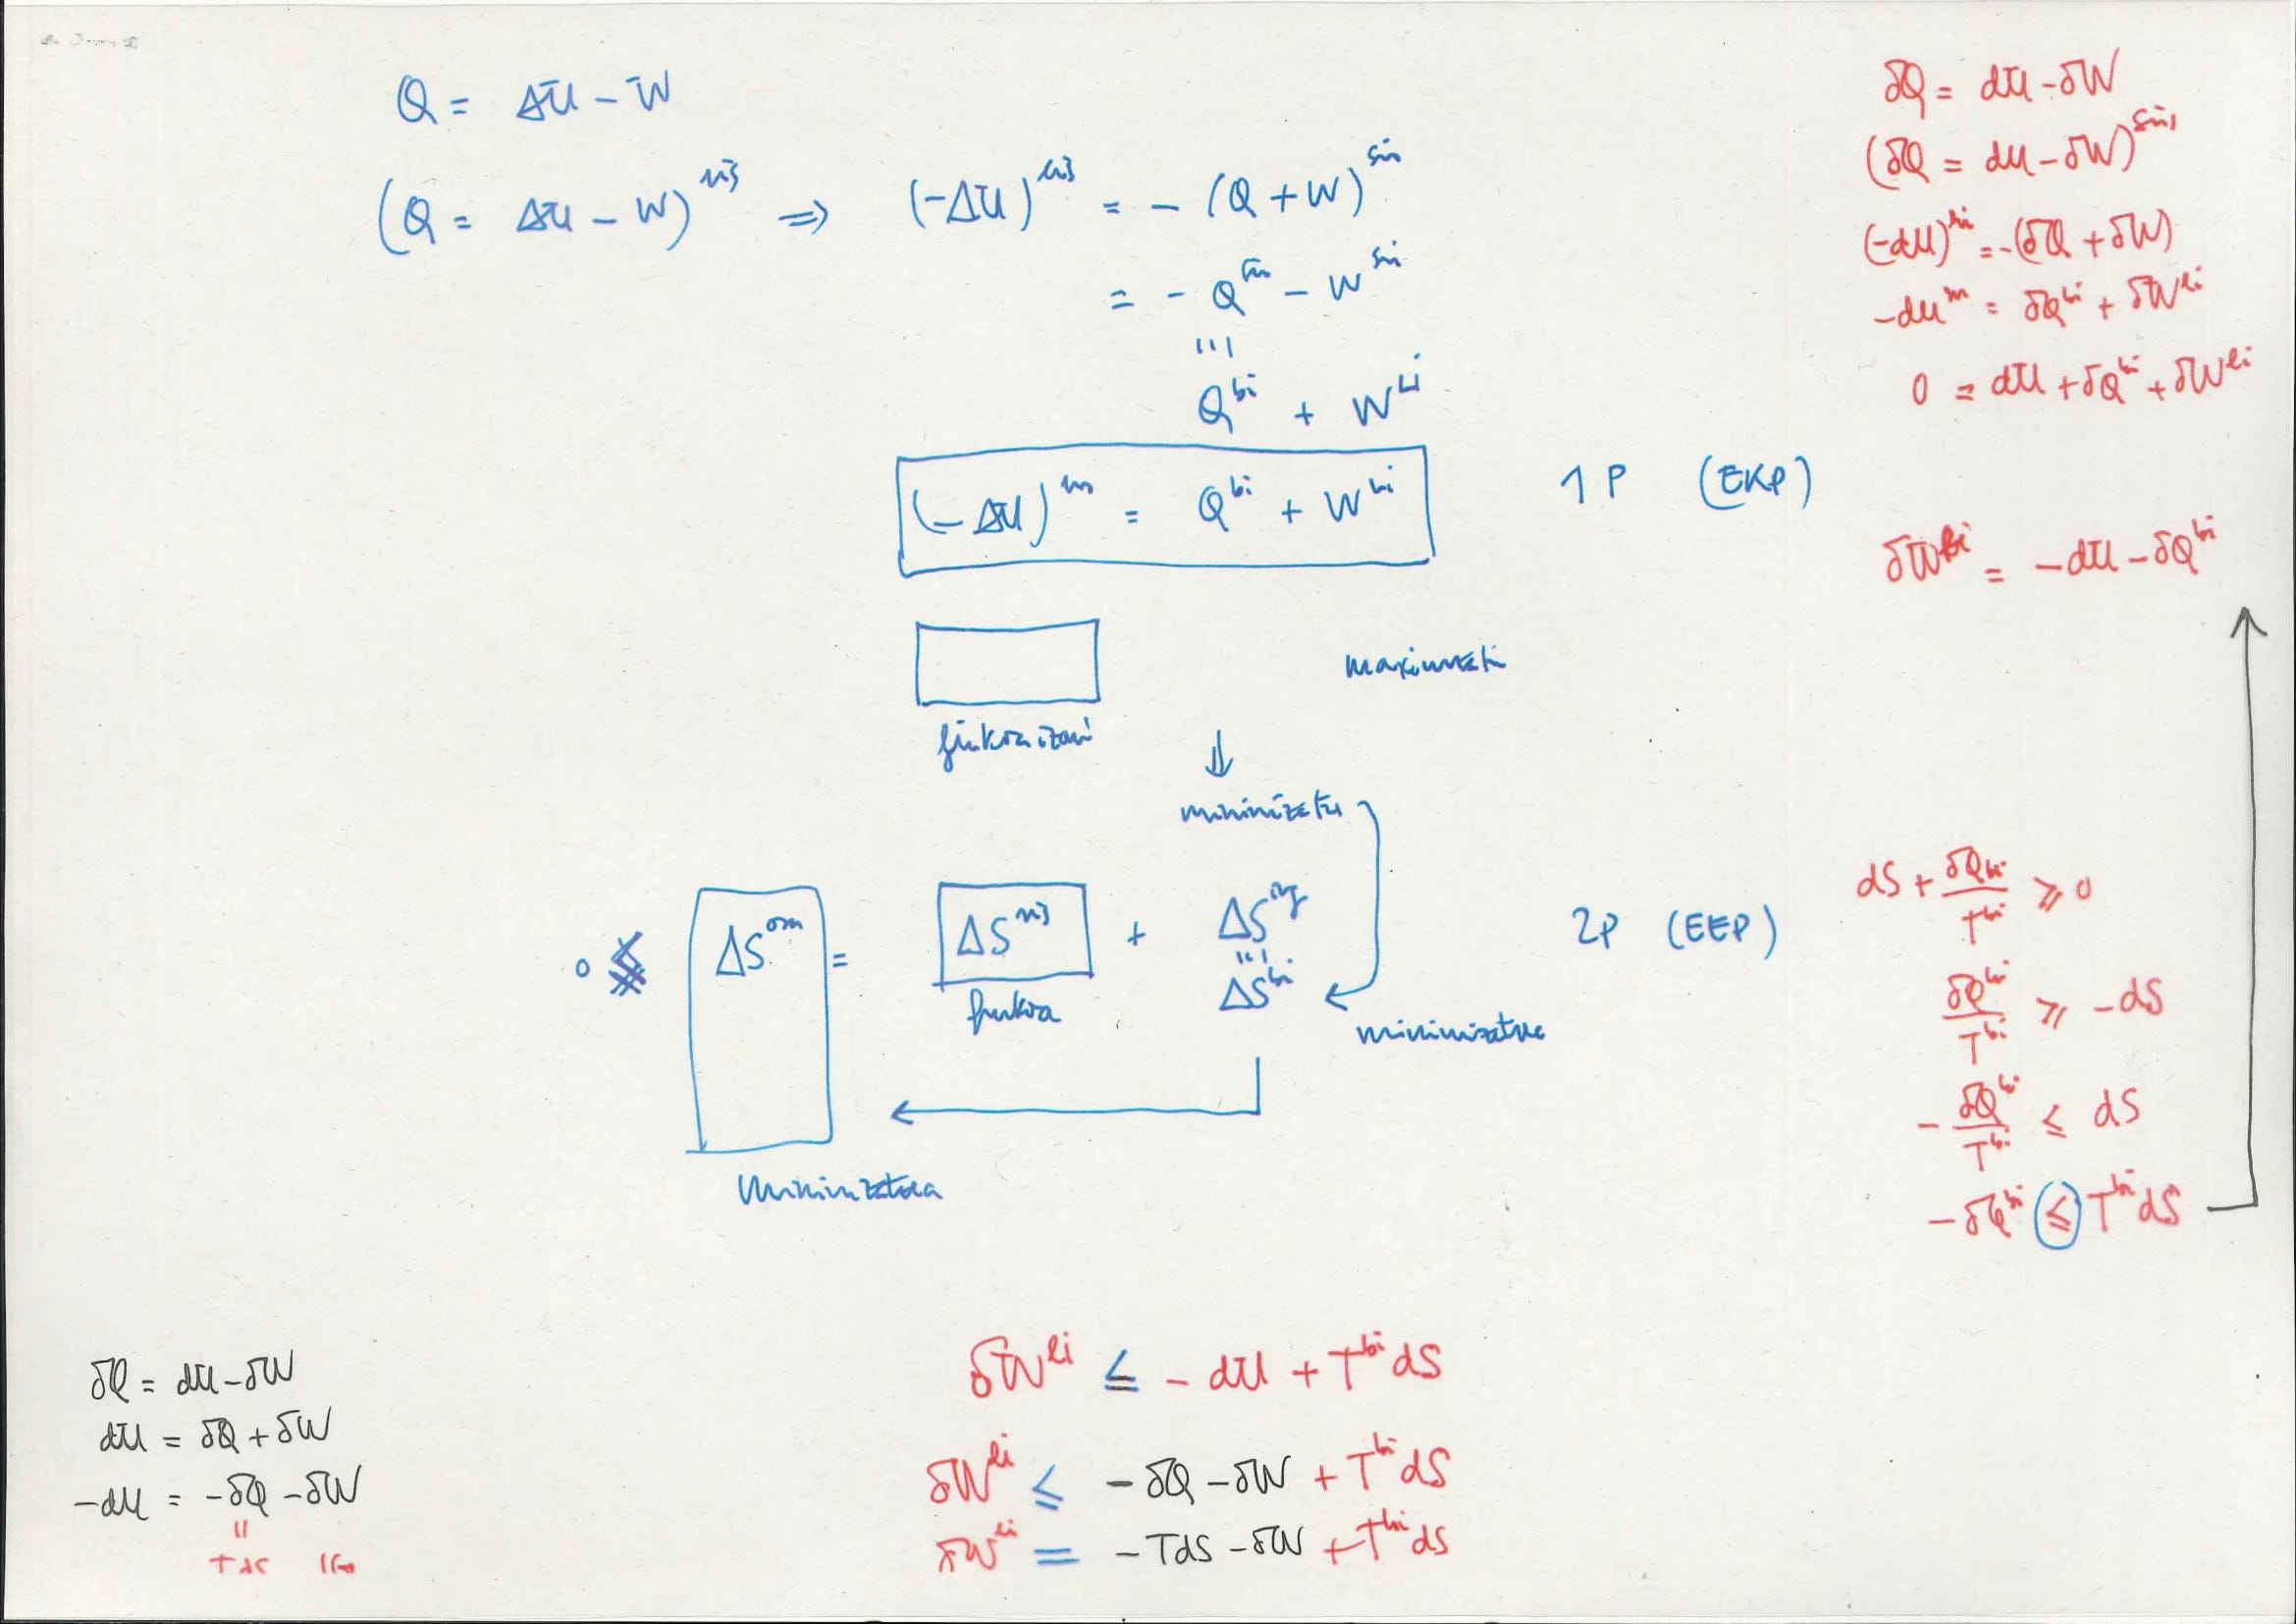 Q = ΔU - W
(Q = ΔU - W)^sis ⇒ (-ΔU)^sis = - (Q + W)^sis
= - Q^sis - W^sis
Q^bi + W^li
(-ΔU)^sis = Q^bi + W^li
1P (EKP)
maximizatu
finkoa izan
↓
minimizatu
0 ≤ ΔS^osoa = ΔS^sis + ΔS^ing
ΔS^bi
2P (EEP)
finkoa
minimizatua
minimizatua
δQ = dU - δW
(δQ = dU - δW)^sis
(-dU)^sis = -(δQ + δW)
-dU^sis = δQ^bi + δW^li
0 = dU + δQ^bi + δW^li
δW^li = -dU - δQ^bi
dS + δQ^bi/T^bi ≥ 0
δQ^bi/T^bi ≥ -dS
- δQ^bi/T^bi ≤ dS
- δQ^bi ≤ T^bi dS
δQ = dU - δW
dU = δQ + δW
-dU = -δQ - δW
TdS
δW^li ≤ - dU + T^bi dS
δW^li ≤ - δQ - δW + T^bi dS
δW^li = - TdS - δW + T^bi dS